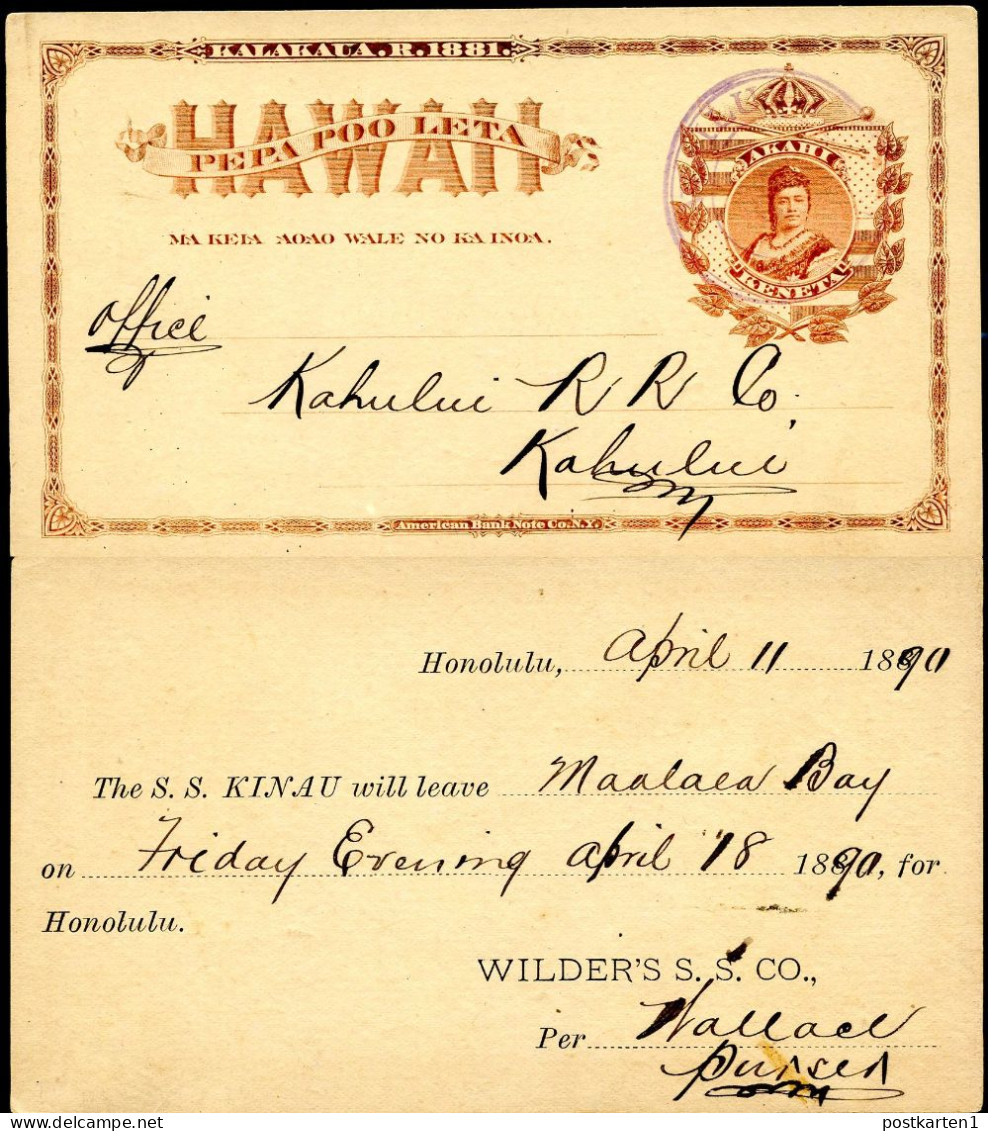 KALAKAUA.R.1881.
HAWAII
PEPA POO LETA
AKAHI
KENETA
MA KEIA AOAO WALE NO KA INOA.
Office
Kahului R R Co.
Kahului
American Bank Note Co. N.Y.
Honolulu, April 11 1890
The S. S. KINAU will leave Maalaea Bay
on Friday Evening April 18 1890, for
Honolulu.
WILDER'S S. S. CO.,
Per Wallace
Purser
postkarten1